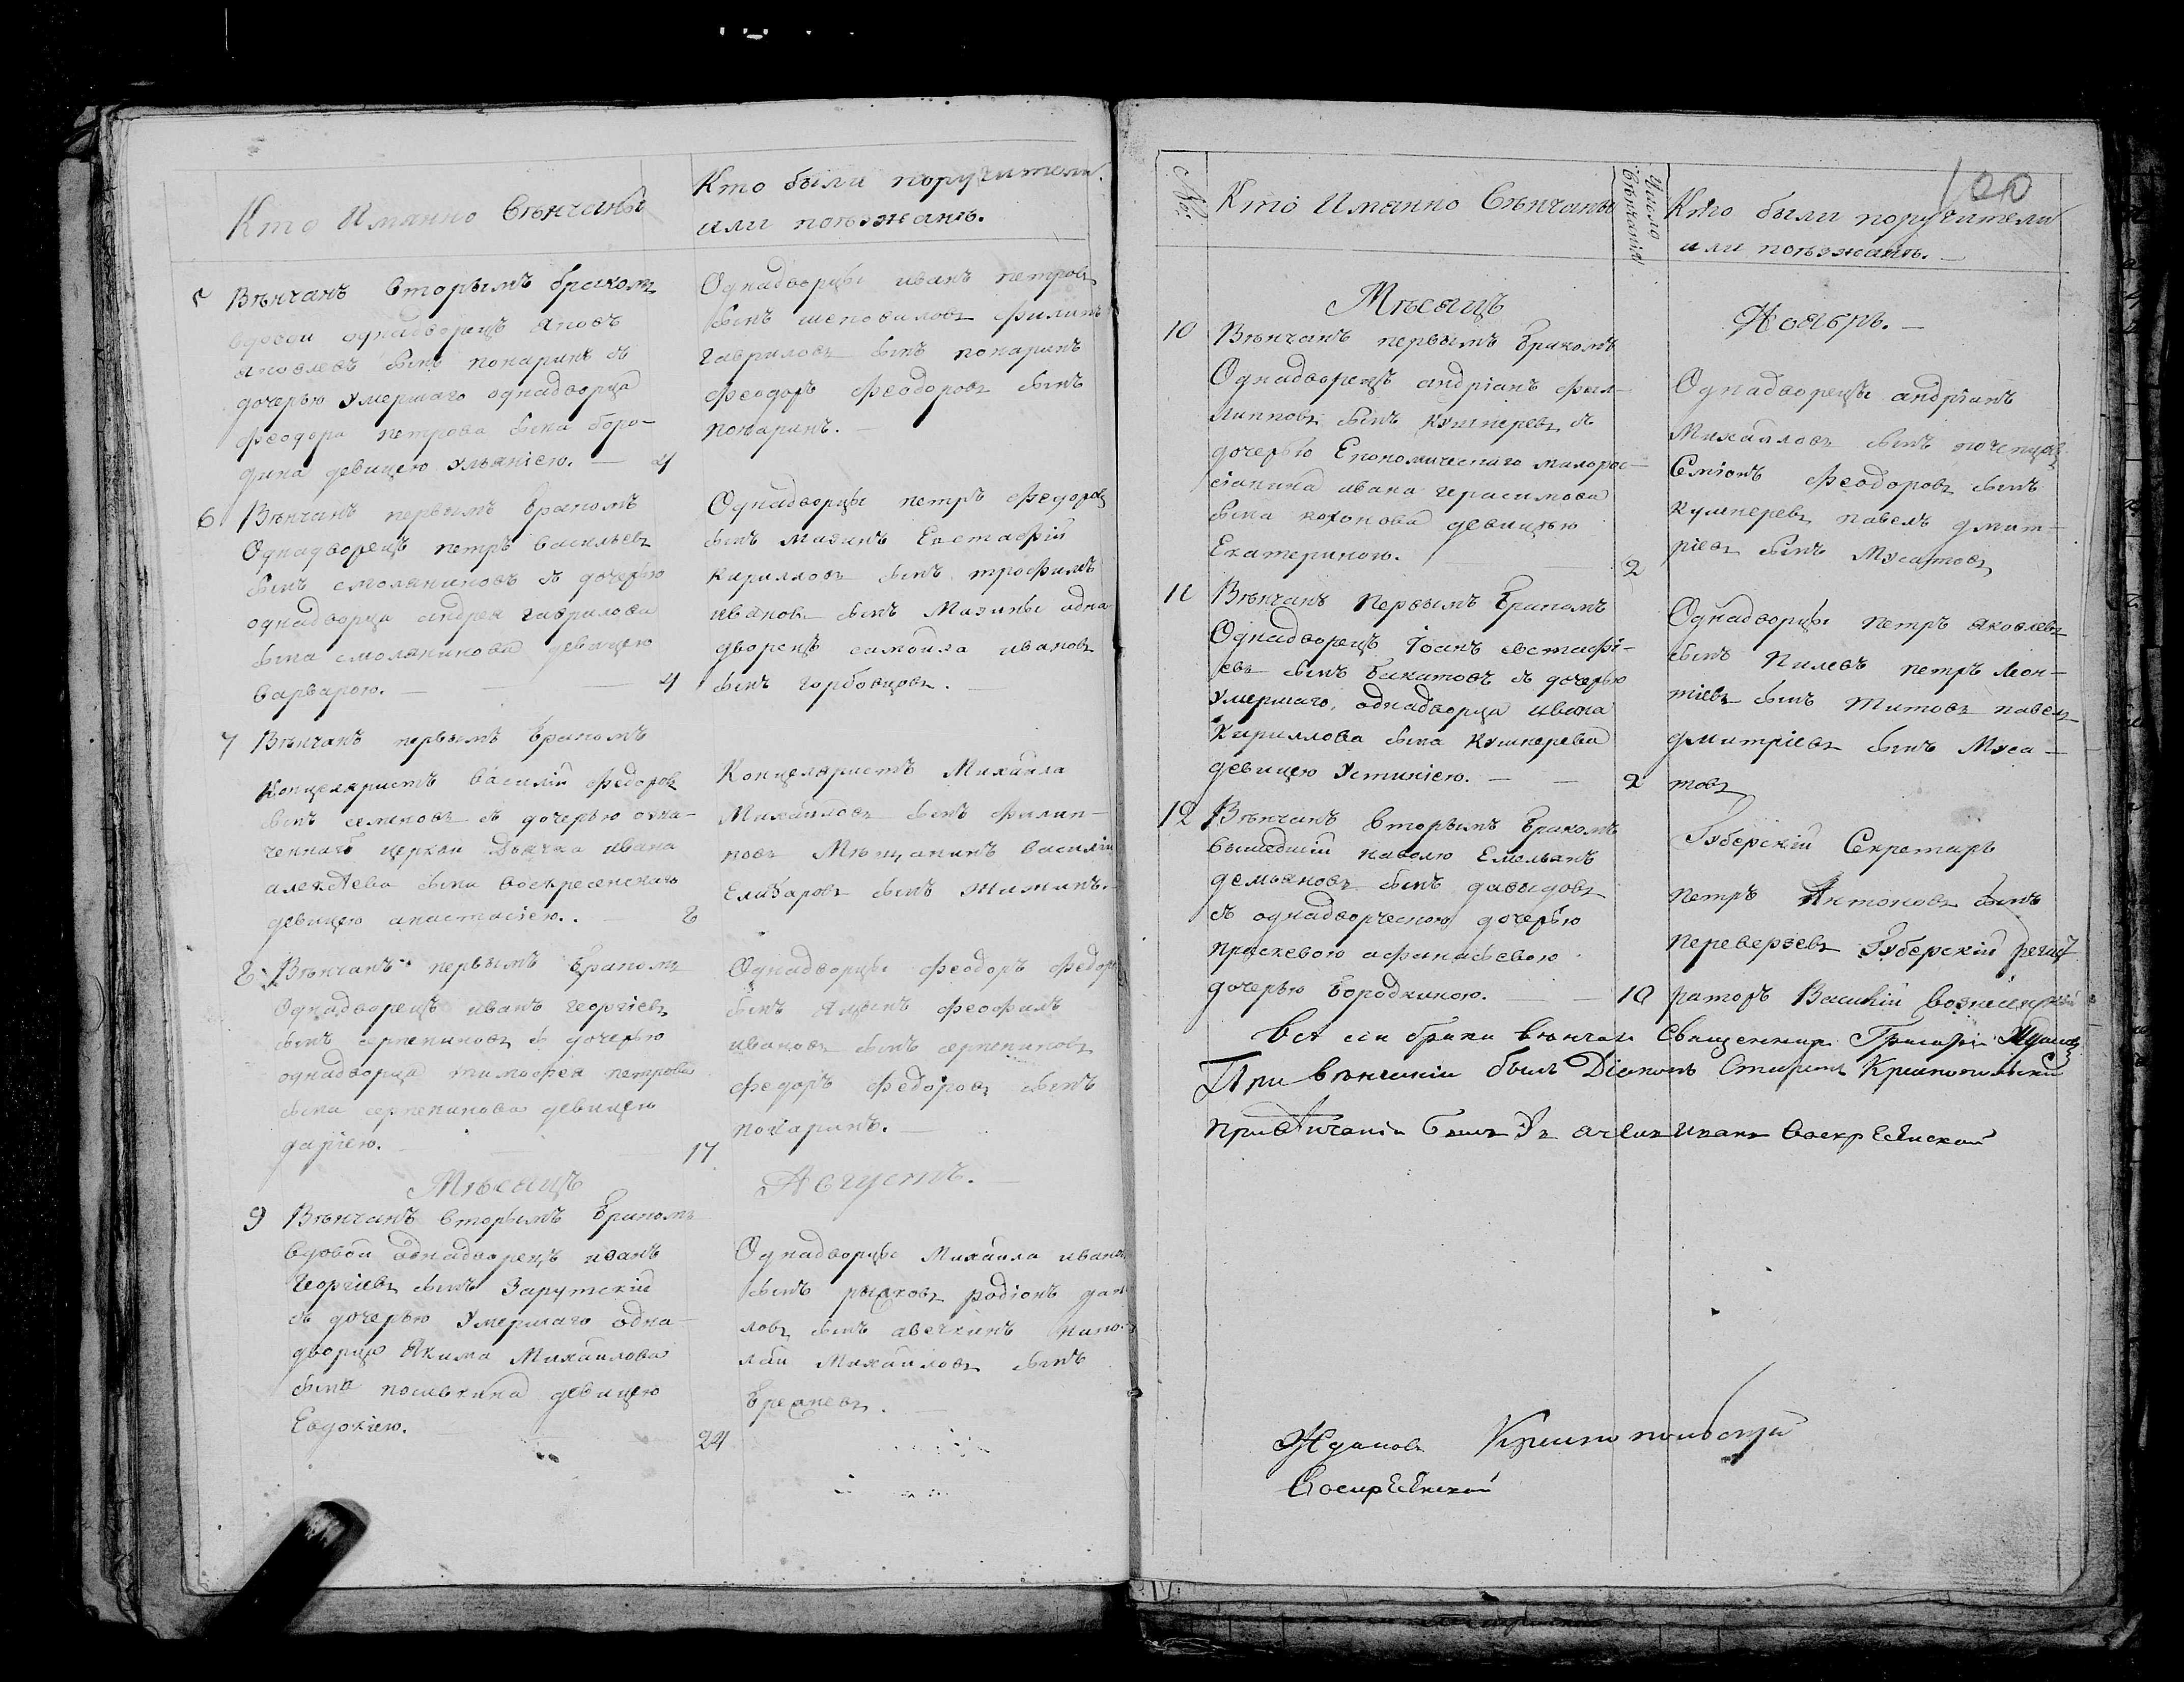 Кто Имянно Вѣнчаны
Кто были поручители
или поѣзжанѣ.
5 Вѣнчанъ вторымъ бракомъ
вдовой однадворецъ Яковъ
Яковлевъ сынъ покаринъ съ
дочерью умершаго однадворца
Феодора петрова сына боро-
дина девицею Ульяніею. — 4
Однадворцы иванъ петровъ
сынъ шеповаловъ филипъ
гавриловъ сынъ покаринъ
Феодоръ Феодоровъ сынъ
покаринъ. —
6 Вѣнчанъ первымъ бракомъ
Однадворецъ петръ васильевъ
сынъ смоляниновъ съ дочерью
однадворца андрея гаврилова
сына смолянинова девицею
варварою. — 4
Однадворцы петръ Федоровъ
сынъ Мазинъ Евстафій
Кирилловъ сынъ трофимъ
ивановъ сынъ Мазины одна
дворецъ самойла ивановъ
сынъ горбовцовъ. —
7 Вѣнчанъ первымъ бракомъ
Концеляристъ василій Федоровъ
сынъ семеновъ съ дочерью озна-
ченнаго церкви Дьячка ивана
алексѣева сына воскресенскаго
девицею анастасіею. — 8
Концеляристъ Михайла
Михайловъ сынъ филип-
повъ Мѣщанинъ василій
Елизаровъ сынъ
8 Вѣнчанъ первымъ бракомъ
Однадворецъ иванъ георгіевъ
сынъ серпениновъ съ дочерью
однадворца тимофея петрова
сына серпенинова девицею
даріею. 17
Однадворцы феодоръ Федоровъ
сынъ феофилъ
ивановъ сынъ серпениновъ
федоръ Федоровъ сынъ
покаринъ. —
Мѣсяцъ Августъ.
9 Вѣнчанъ вторымъ бракомъ
вдовой однадворецъ иванъ
Георгіевъ сынъ Зарутскій
съ дочерью умершаго одна-
дворца Якима Михайлова
сына девицею
Евдокіею. 24
Однадворцы Михайла ивановъ
сынъ рыжковъ родіонъ
ловъ сынъ авечкинъ нико-
лай Михайловъ сынъ
№: Кто Имянно Вѣнчаны
Число Вѣнчанія
Кто были поручители
или поѣзжанѣ. —
100
Мѣсяцъ Ноябрь. —
10 Вѣнчанъ первымъ бракомъ
Однадворецъ андріанъ фил-
липповъ сынъ Кушнеревъ съ
дочерью Економическаго малорос-
сіянина ивана герасимова
сына кохонова девицею
Екатериною. 2
Однадворецъ андріанъ
Михайловъ сынъ
Семіонъ Феодоровъ сынъ
Кушнеревъ павелъ дмит-
ріевъ сынъ Мусатовъ
11 Вѣнчанъ первымъ бракомъ
Однадворецъ Іоанъ евстафі-
евъ сынъ Бакатовъ съ дочерью
умершаго однадворца ивана
Кириллова сына Кушнерева
девицею Устиніею. — 2
Однадворцы петръ яковлевъ
сынъ Пилевъ петръ леон-
тіевъ сынъ Титовъ павелъ
дмитріевъ сынъ Муса-
товъ
12 Вѣнчанъ вторымъ бракомъ
вышедшій наволю Емельянъ
демьяновъ сынъ давыдовъ
съ однадворческою дочерью
праскевою афанасьевою
дочерью бородкиною. — 10
Губерскій Секретарь
петръ Антоновъ сынъ
переверзевъ Губерскій регис
раторъ Василій вознесенскій
Всѣ сіи браки вѣнчалъ Священникъ Григорій Ждановъ
При вѣнчаніи былъ Діаконъ Спиридонъ Кришнопольскій
при вѣнчаніи былъ Дьячекъ Иванъ Воскресенской
Ждановъ Кришнопольскій
Воскресенской